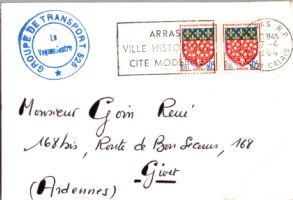 GROUPE DE TRANSPORT 525
Le
Vaguemestre
ARRAS
VILLE HISTORIQUE
CITE MODERNE
ARRAS R.P.
18H45
-4
PAS-DE-CALAIS
Monsieur Goin René
168bis, Route de Bon Secours, 168
Givet
(Ardennes)